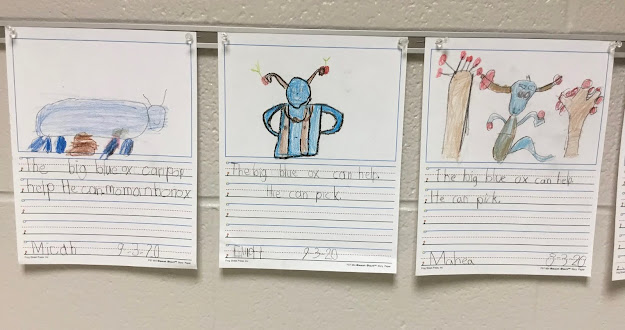 The big blue ox can pop
help He can momanhonox
Micah 9-3-20
The big blue ox can help.
He can pick.
Elliott 9-3-20
The big blue ox can help
He can pick.
Mahea 9-3-20